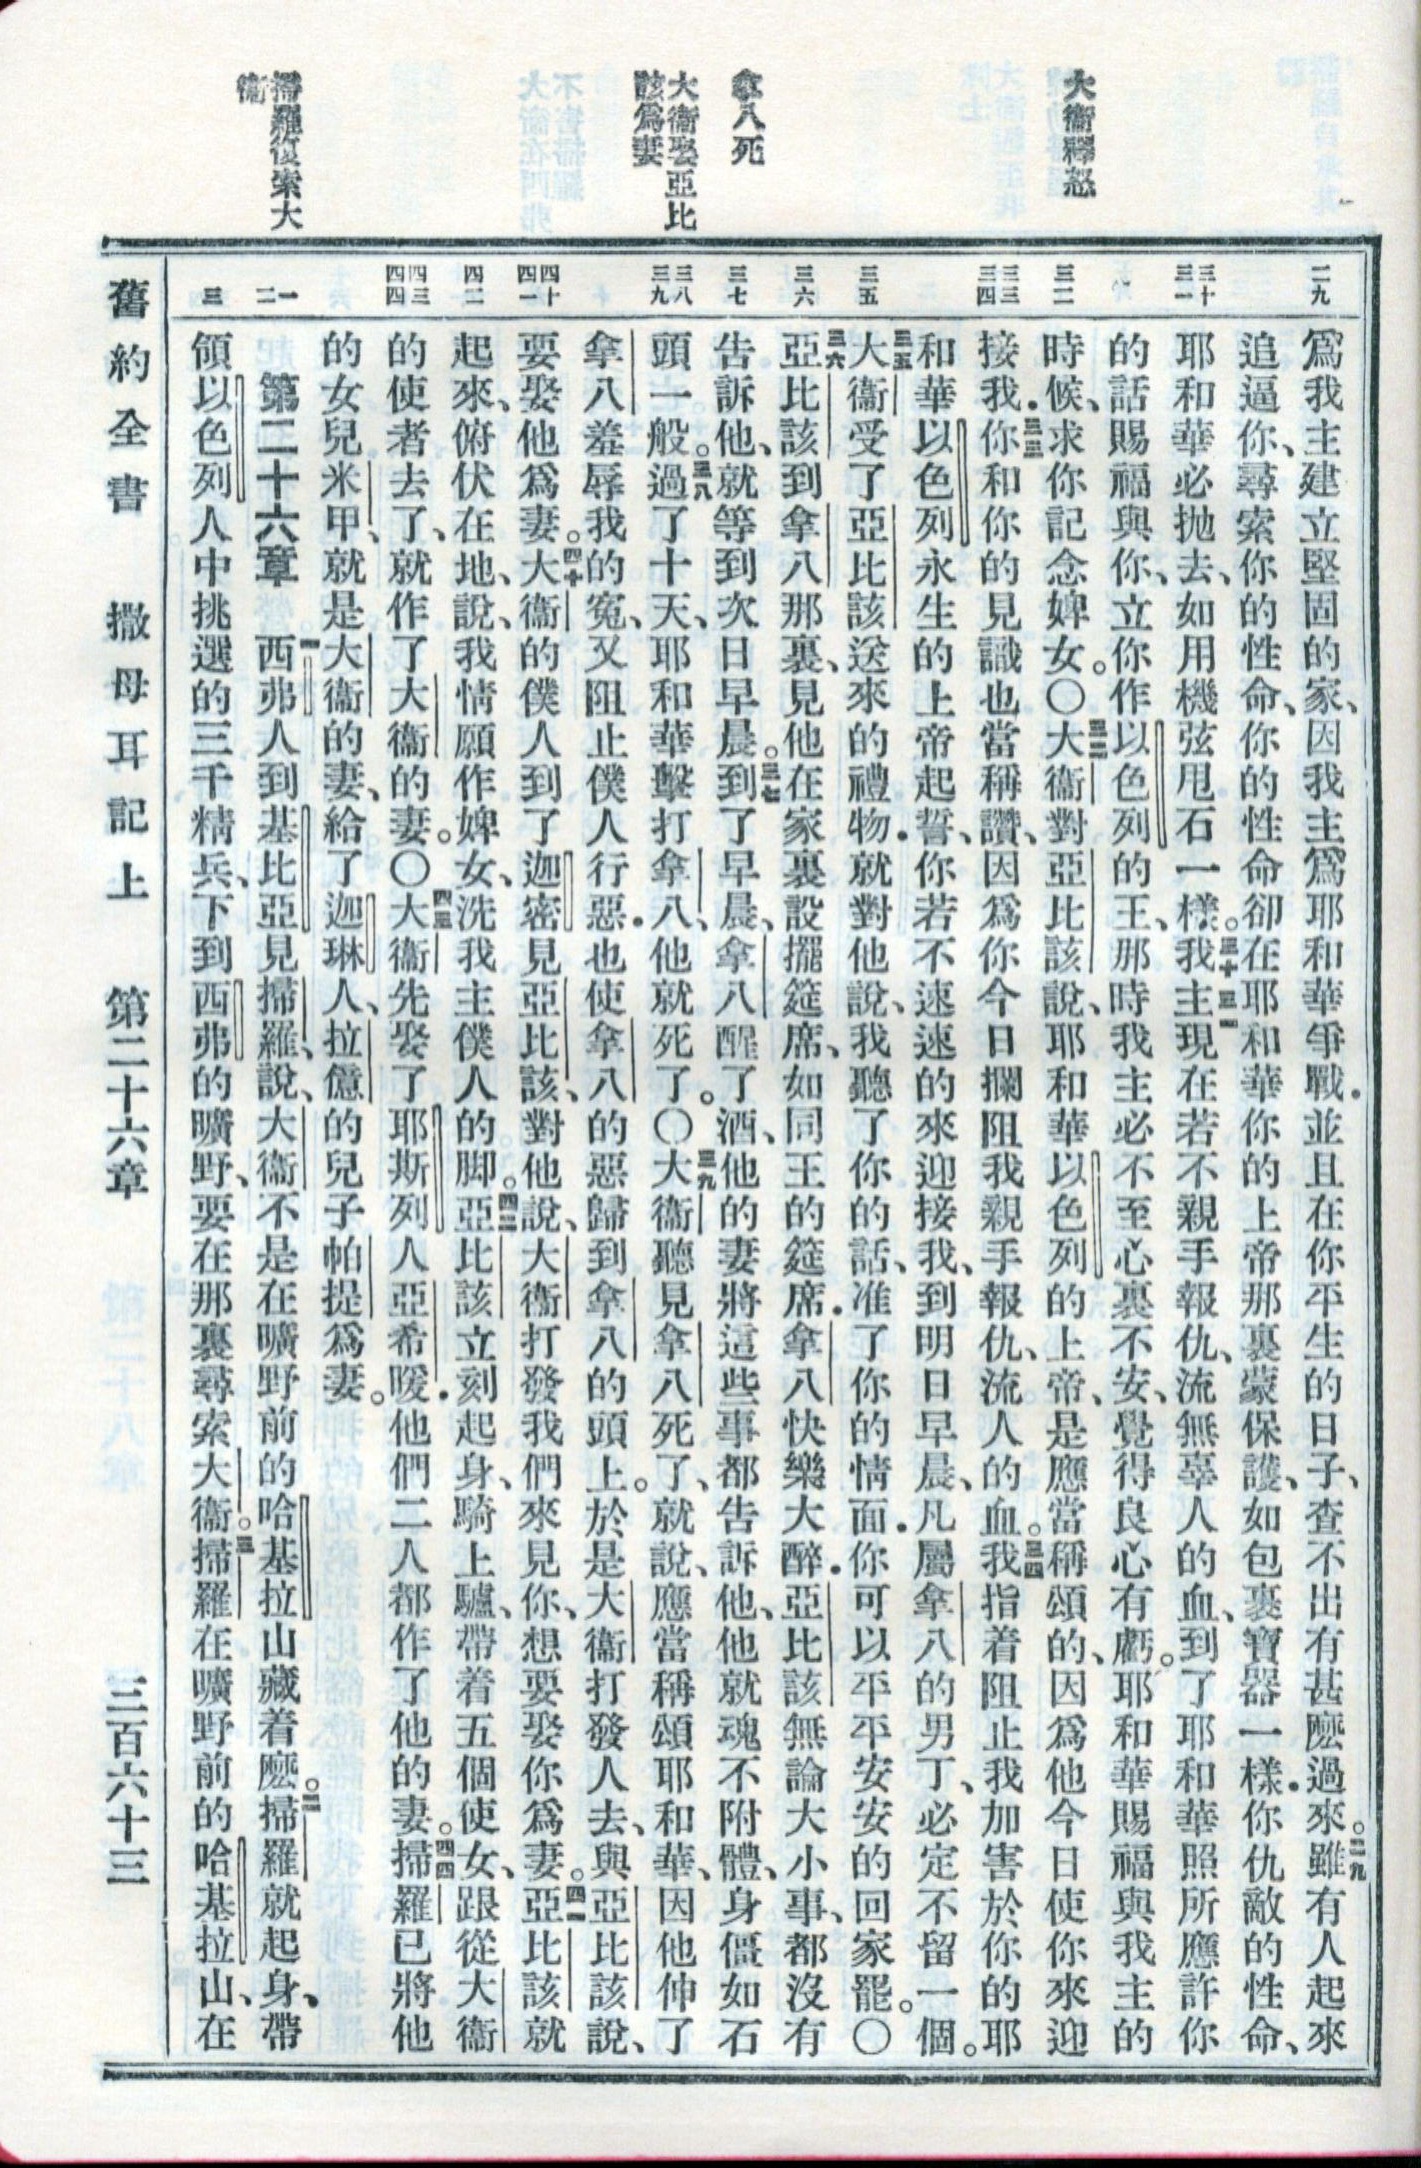 大衞釋怒
拿八死
大衞娶亞比
該爲妻
掃羅復索大
衞
二九
三十
三一
三二
三三
三四
三五
三六
三七
三八
三九
四十
四一
四二
四三
四四
一
二
三
爲我主建立堅固的家、因我主爲耶和華爭戰．並且在你平生的日子、查不出有甚麽過來。二九雖有人起來
追逼你、尋索你的性命、你的性命卻在耶和華你的上帝那裏蒙保護、如包裹寶器一樣．你仇敵的性命、
耶和華必抛去、如用機弦甩石一樣。三十三一我主現在若不親手報仇、流無辜人的血、到了耶和華照所應許你
的話賜福與你、立你作以色列的王、那時我主必不至心裏不安、覺得良心有虧。耶和華賜福與我主的
時候、求你記念婢女。〇三二大衞對亞比該說、耶和華以色列的上帝、是應當稱頌的、因爲他今日使你來迎
接我．三三你和你的見識也當稱讚、因爲你今日攔阻我親手報仇、流人的血。三四我指着阻止我加害於你的耶
和華以色列永生的上帝起誓、你若不速速的來迎接我、到明日早晨、凡屬拿八的男丁、必定不留一個。
三五大衞受了亞比該送來的禮物．就對他說、我聽了你的話、准了你的情面．你可以平平安安的回家罷。〇
三六亞比該到拿八那裏、見他在家裏設擺筵席、如同王的筵席．拿八快樂大醉．亞比該無論大小事、都沒有
告訴他、就等到次日早晨。三七到了早晨、拿八醒了酒、他的妻將這些事都告訴他、他就魂不附體、身僵如石
頭一般。三八過了十天、耶和華擊打拿八、他就死了。〇三九大衞聽見拿八死了、就說、應當稱頌耶和華、因他伸了
拿八羞辱我的寃、又阻止僕人行惡．也使拿八的惡歸到拿八的頭上。於是大衞打發人去、與亞比該說、
要娶他爲妻。四十大衞的僕人到了迦密見亞比該、對他說、大衞打發我們來見你、想要娶你爲妻。四一亞比該就
起來、俯伏在地、說、我情願作婢女、洗我主僕人的脚。四二亞比該立刻起身、騎上驢、帶着五個使女、跟從大衞
的使者去了、就作了大衞的妻。〇四三大衞先娶了耶斯列人亞希暖．他們二人都作了他的妻。四四掃羅已將他
的女兒米甲、就是大衞的妻、給了迦琳人、拉億的兒子帕提爲妻。
第二十六章　一西弗人到基比亞見掃羅、說、大衞不是在曠野前的哈基拉山藏着麽。二掃羅就起身、帶
領以色列人中挑選的三千精兵、下到西弗的曠野、要在那裏尋索大衞。三掃羅在曠野前的哈基拉山、在
舊約全書　撒母耳記上　第二十六章　三百六十三